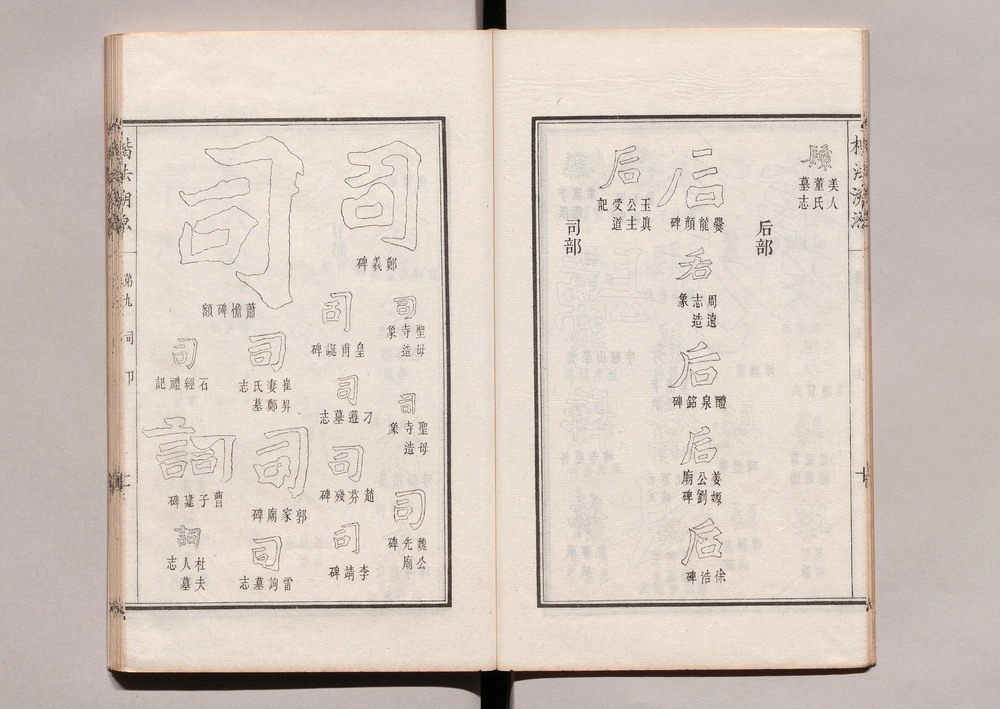 美人董氏墓志
后部
后
爨龍顏碑
后
周遠志造象
后
醴泉銘碑
后
姜嫄公劉廟碑
后
徐浩碑
后
玉眞公主受道記
司部
司
鄭羲碑
司
聖母寺造象
司
聖母寺造象
司
魏公先廟碑
司
皇甫誕碑
司
刁遵墓志
司
趙芬殘碑
司
李靖碑
司
蕭憺碑額
司
崔昇妻鄭氏墓志
司
郭家廟碑
司
雷詢墓志
司
石經禮記
詞
曹子建碑
詞
杜夫人墓志
楷法溯源
第九 司